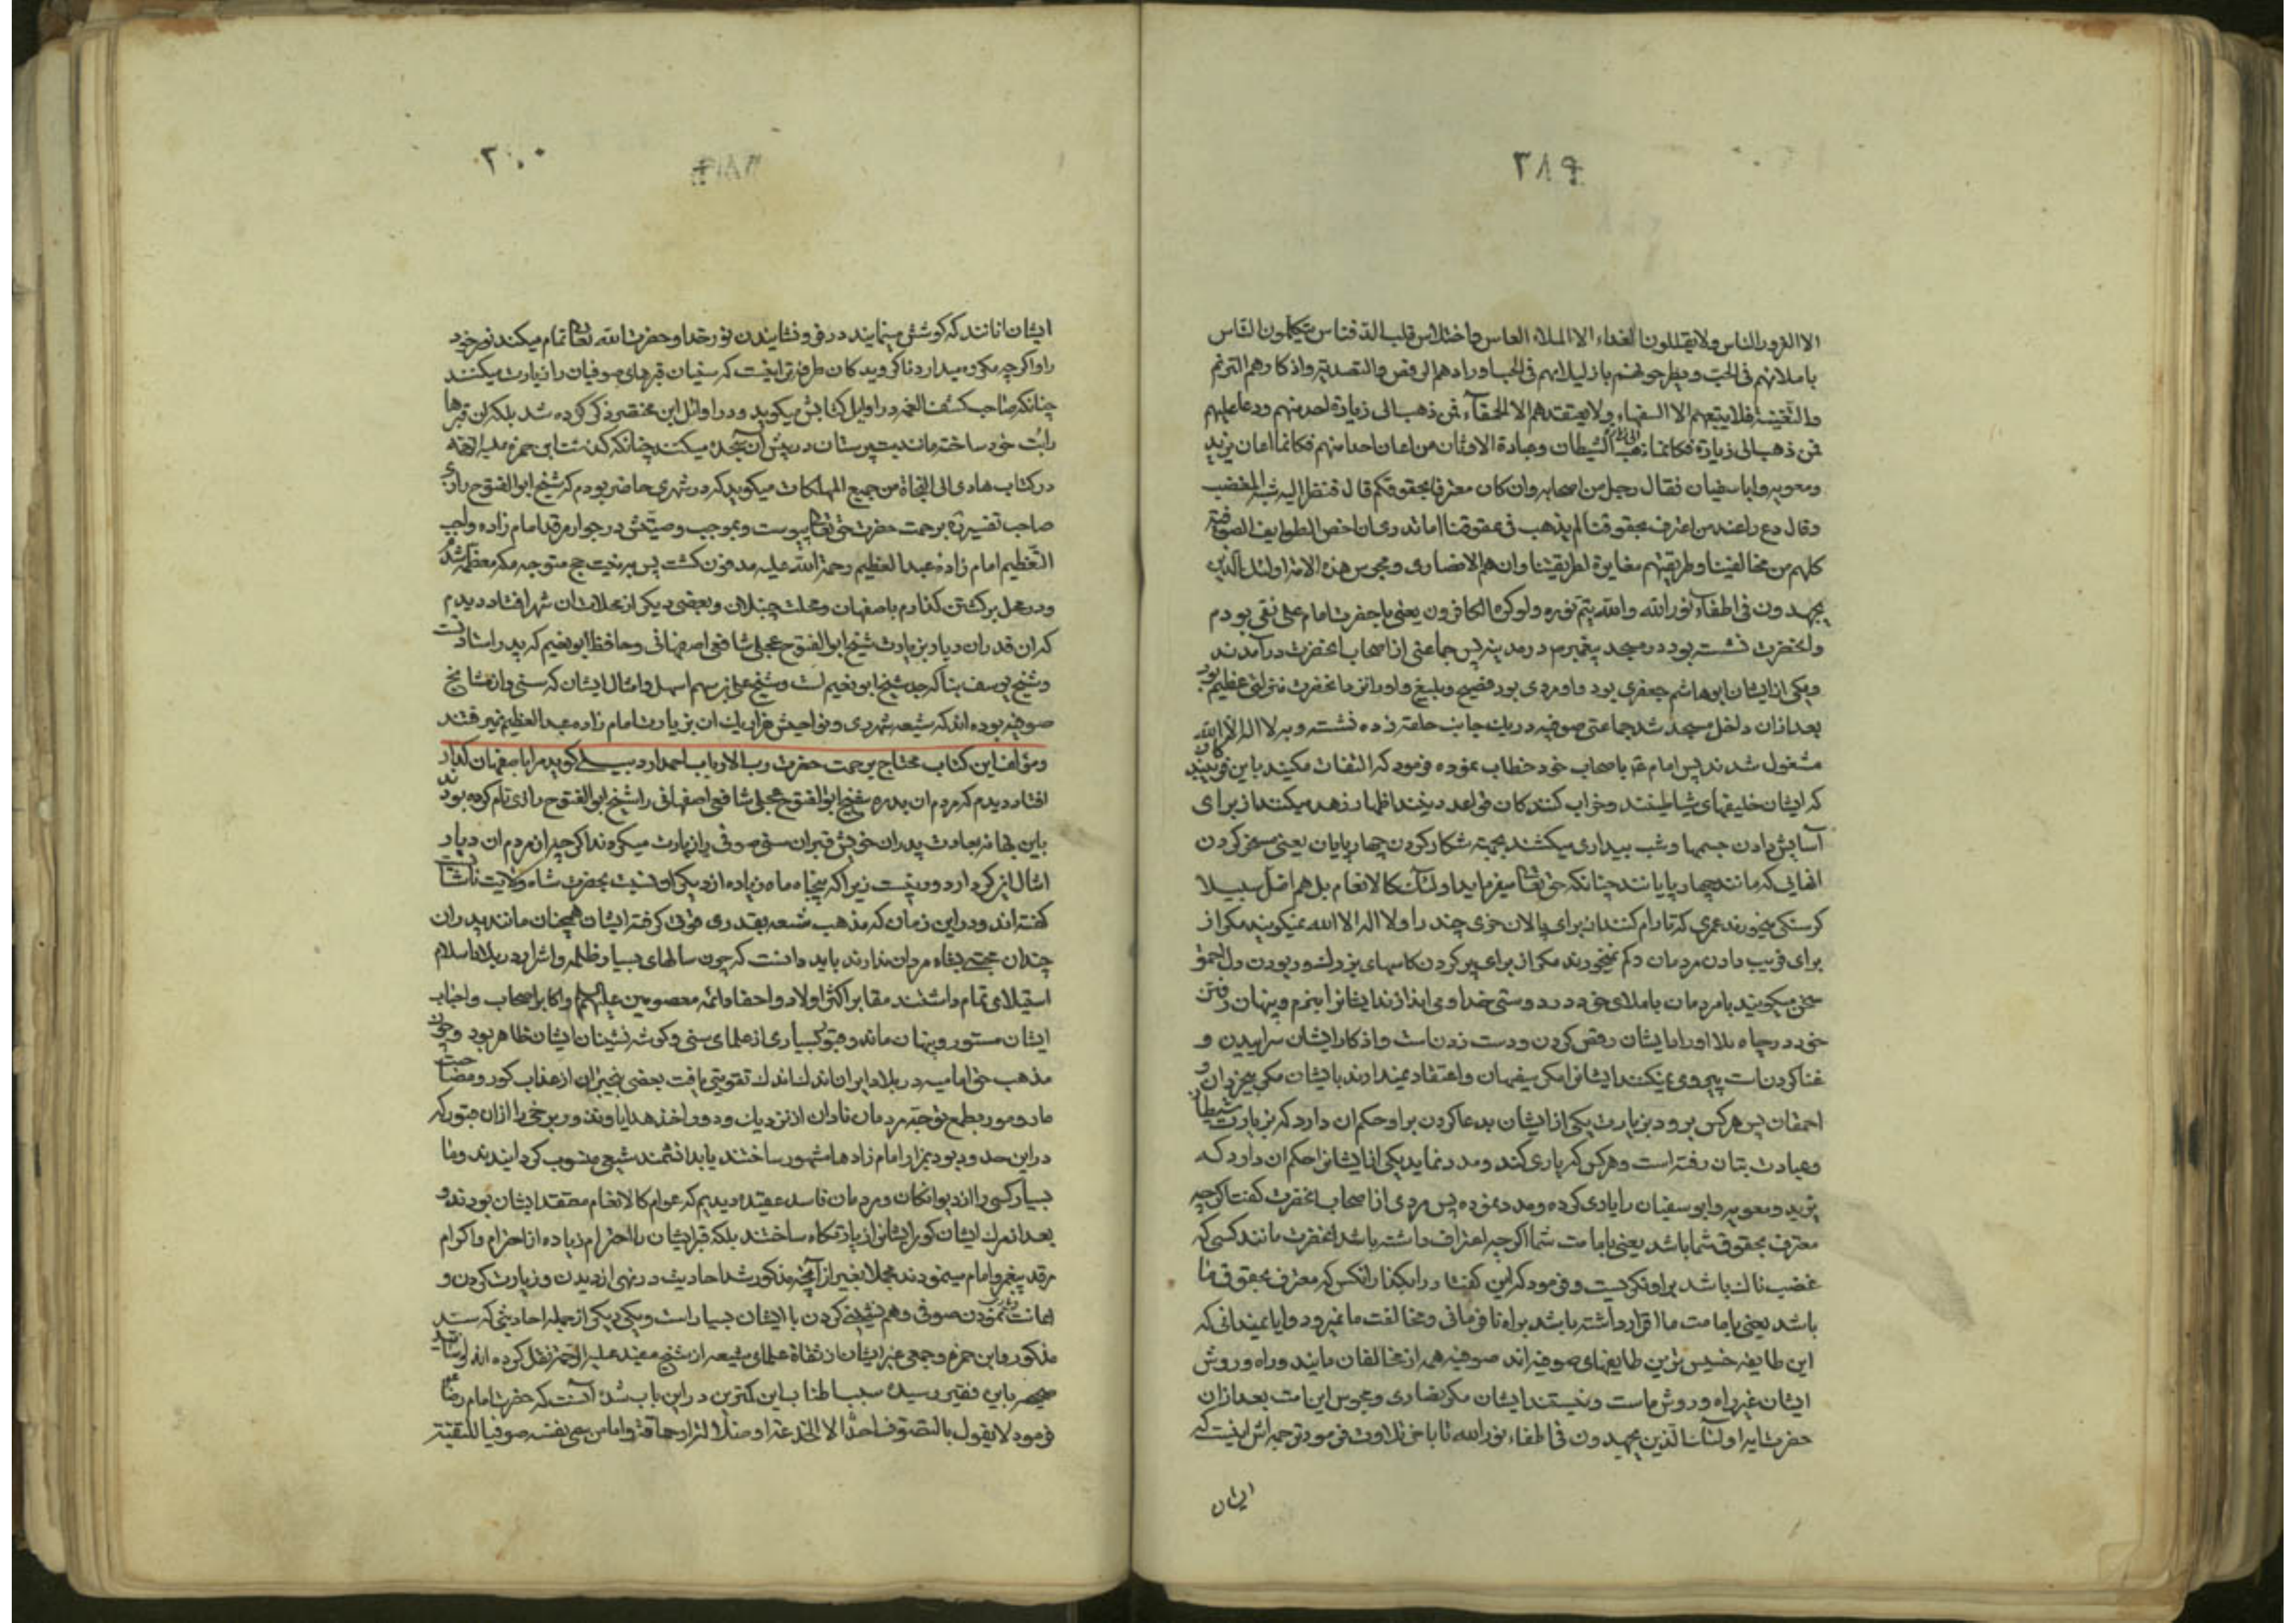 ۳۸۹
الا الغرور الناس ولا یقللون الغداء الا لملاء العساس واختلاس قلب الدفناس یتکلمون الناس
باملائهم فی الحب ویطرحونهم باذلیلائهم فی الجب اورادهم الرقص والتصدیة واذکارهم الترنم
والتغنیة فلا یتبعهم الا السفهاء ولا یعتقدهم الا الحمقاء فمن ذهب الی زیارة احد منهم
فمن ذهب الی زیارة فکانما ذهب الی زیارة الشیطان وعبادة الاوثان من اعان احدا منهم فکانما اعان یزید
ومعویه وابا سفیان فقال رجل من اصحابه وان کان معترفا بحقوقکم قال فنظر الیه شبه المغضب
وقال دع ذا عنك من اعترف بحقوقنا لم یذهب فی عقوقنا اما تدری ان اخص الطوایف الصوفیة
کلهم من مخالفینا وطریقتهم مغایرة لطریقتنا وان هم الا نصاری ومجوس هذه الامة اولئك الذین
یجهدون فی اطفاء نور الله والله یتم نوره ولو کره الکافرون یعنی با حضرت امام علی نقی بودم
وانحضرت نشسته بود در مسجد پیغمبر در مدینه پس جماعتی از اصحاب انحضرت درآمدند
ویکی از ایشان ابوهاشم جعفری بود و او مردی بود فصیح وبلیغ و او را نزد انحضرت منزلتی عظیم بود
بعد ازان داخل مسجد شد جماعتی صوفیه در یك جانب حلقه زده نشستند وبه لا اله الا الله
مشغول شدند پس امام باصحاب خود خطاب نموده فرمود که التفات مکنید باین فریبندکان
که ایشان خلیفهای شیاطینند وخراب کنندکان قواعد دینند اظهار زهد میکنند از برای
آسایش دادن جسمها وشب بیداری میکشند بجهة شکار کردن چهارپایان یعنی مسخر کردن
انهایی که مانند چهارپایانند چنانکه حق تعا میفرماید اولئك کالانعام بل هم اضل سبیلا
کرسنکی میخورند عمری که تا رام کنند از برای پالان خری چند را ولا اله الا الله نمیکویند مکر از
برای فریب دادن مردمان وکم نمیخورند مکر از برای پر کردن کاسهای بزرك
سخن میکویند با مردمان باملای خود در دوستی خدا
خود در چاه اوراد ایشان رقص کردن ودست زدنست واذکار ایشان سراییدن و
غنا کردنست پیروی نمیکنند ایشانرا مکر سفیهان واعتقاد نمیدارند بایشان مکر
احمقان پس هرکس برود بزیارت یکی از ایشان بدعا کردن بر او حکم ان دارد که بزیارت شیطان
وعبادت بتان رفته است وهرکس که یاری کند ومدد نماید یکی از ایشانرا حکم ان دارد که
یزید ومعویه وابو سفیان را یاری کرده ومدد نموده پس مردی از اصحاب انحضرت کفت اکرچه
معترف بحقوق شما باشد یعنی بامامت شما اکرچه اعتراف داشته باشد انحضرت مانند کسی که
غضبناك باشد بر او نکریست وفرمود که این کفتار را بکذار انکس که معترف بحقوق ما
باشد یعنی بامامت ما اقرار داشته باشد براه نافرمانی ومخالفت ما نمیرود وایا نمیدانی که
این طایفه خسیس ترین طایفهای صوفیه اند صوفیه همه از مخالفان مایند وراه وروش
ایشان غیر راه وروش ماست ونیستند ایشان مکر نصاری ومجوس این امت بعد ازان
حضرت ایه اولئك الذین یجهدون فی اطفاء نور الله تا باخر تلاوت فرمود ترجمه اش اینست که
ایشان
ایشان انانند که کوشش مینمایند در فرونشانیدن نور خدا وحضرت الله تعا تمام میکند نور خود
را واکرچه مکروه میدارند ناکرویدکان طرفه تر اینست که سنیان قبرهای صوفیان را زیارت میکنند
چنانکه صاحب کشف الغمه در اوایل کتابش میکوید ودر اوائل این مختصر ذکر کرده شد بلکه ان قبرها
را بت خود ساخته مانند بت پرستان در پیش آن سجده میکنند چنانکه ابن حمزه علیه الرحمه
در کتاب هادی الی النجاة من جمیع المهلکات میکوید که در شهری حاضر بودم که شیخ ابو الفتوح رازی
صاحب تفسیر برحمت حضرت حق تعا پیوست وبموجب وصیتش در جوار مرقد امام زاده واجب
التعظیم امام زاده عبد العظیم رحمة الله علیه مدفون کشت پس به نیت حج متوجه مکه معظمه شدم
ودر محل برکشتن کذارم باصفهان ومحلت چنبلان وبعضی دیکر از محلات ان شهر افتاد دیدم
که ان قدر ان دیار بزیارت شیخ ابو الفتوح عجلی شافعی اصفهانی وحافظ ابو نعیم که پدر استاد
وشیخ یوسف بنا که جد شیخ ابو نعیم است وشیخ علی بن سهل وامثال ایشان که سنی واز مشایخ
صوفیه بوده اند که شیعه شهر ری ونواحیش هزار یك ان بزیارت امام زاده عبد العظیم نمیرفتند
ومؤلف این کتاب محتاج برحمت حضرت رب الارباب احمد اردبیلی کوید مرا باصفهان کذار
افتاد دیدم که مردم ان بلده شیخ ابو الفتوح عجلی شافعی اصفهانی را شیخ ابو الفتوح رازی نام کرده بودند
باین بهانه بعادت پدران خویش قبر ان سنی صوفی را زیارت میکردند اکرچه از مردم ان دیار
امثال این کردار دور نیست زیرا که پنجاه ماه زیاده از دیکران نسبت بحضرت شاه ولایت
کفته اند ودر این زمان که مذهب شیعه بقدری قوتی کرفته ایشان همچنان مانند پدران
چندان محبتی بشاه مردان ندارند باید دانست که چون سالهای بسیار ظلمه واشرار در بلاد اسلام
استیلای تمام داشتند مقابر اکثر اولاد واحفاد ائمه معصومین علیهم السلام واکابر اصحاب واحباب
ایشان مستور وپنهان ماند وقبور بسیاری از علمای سنی وکوشه نشینان ایشان ظاهر بود وچون
مذهب حق امامیه در بلاد ایران اندك اندك تقویتی یافت بعضی بیخبران از عذاب کور ومصاحبت
مار ومور بطمع توجه مردمان نادان از نزدیك ودور واخذ هدایا ونذور برخی را ازان قبور که
در این حدود بود بمزار امام زادها مشهور ساختند یا بدانشمند شیعی منسوب کردانیدند وما
بسیار کسی را از دیوانکان ومردمان فاسد عقیده دیدیم که عوام کالانعام معتقد ایشان بودند و
بعد از مرك ایشان کور ایشانرا زیارتکاه ساختند بلکه قبر ایشان را احترام زیاده از احترام واکرام
مرقد پیغمبر وامام مینمودند مجملا بغیر از آنچه مذکور شد احادیث در نهی از دیدن وزیارت کردن و
اعانت نمودن صوفی وهم نشینی کردن با ایشان بسیار است ویکی دیکر از جمله احادیثی که سید
مذکور وابن حمزه وجمعی غیر ایشان از ثقاة علمای شیعه از شیخ مفید علیه الرحمه نقل کرده اند
صحیحه باین فقیر رسیده سبب اطناب این کمترین در این باب شده آنست که حضرت امام رضا
فرمود لا یقول بالتصوف احد الا لخدعة او ضلالة او حماقة واما من سمی نفسه صوفیا للتقیة